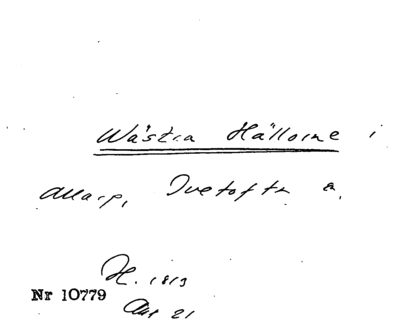 Wästra Hälloine i
Allarp, Ivetofta s.
H. 1813
Nr 10779
Aug 21